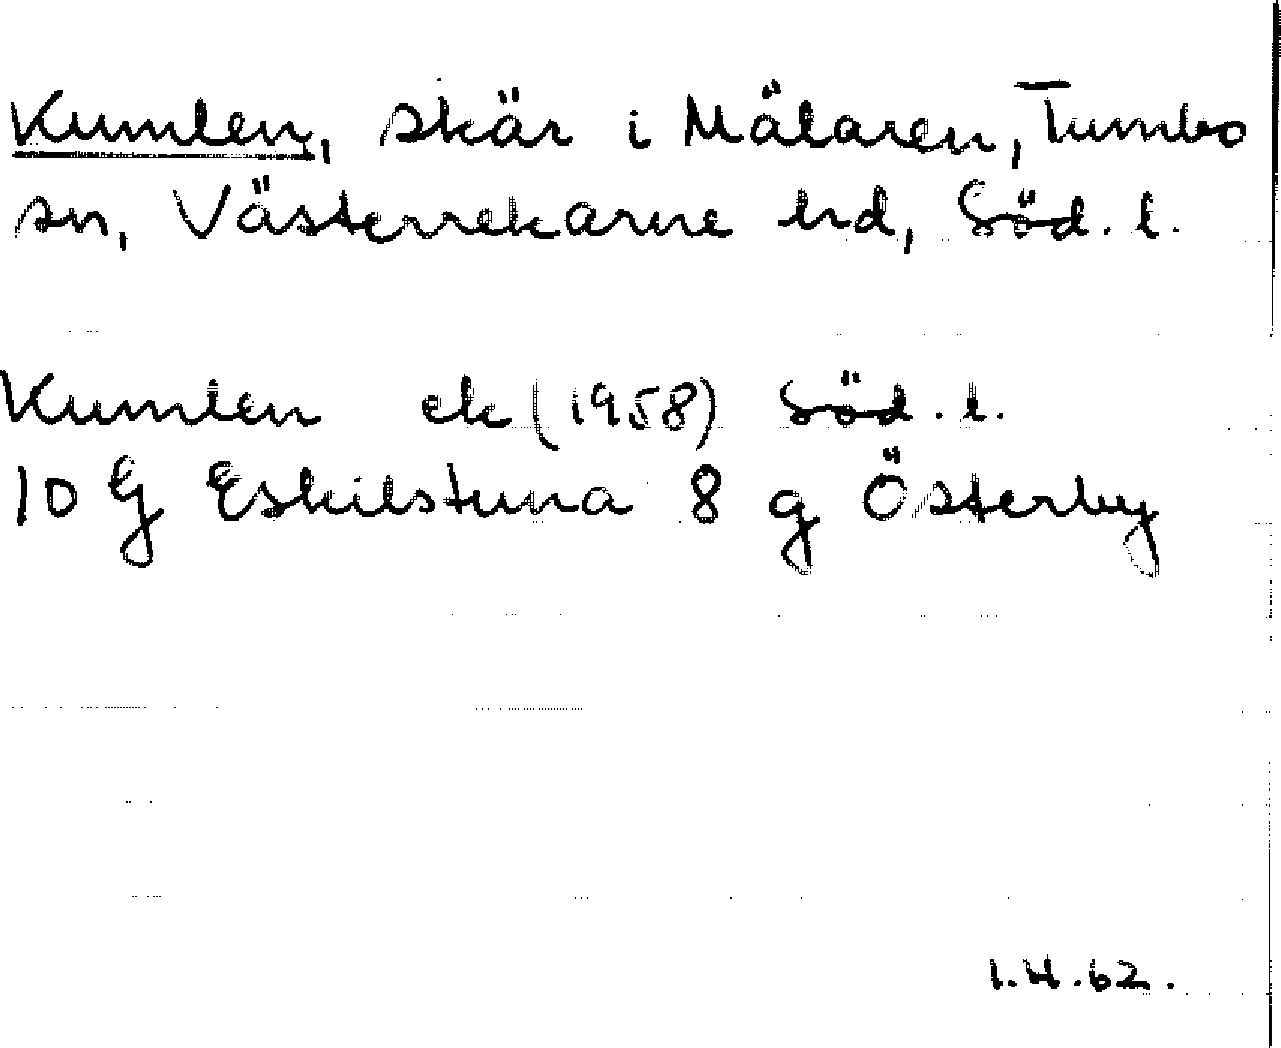 Kumlen, skär i Mälaren, Tumbo
sn, Västerrekarne hd, Söd. l.
Kumlen ek (1958) Söd. l.
10 G Eskilstuna 8 g Österby
1.4.62.